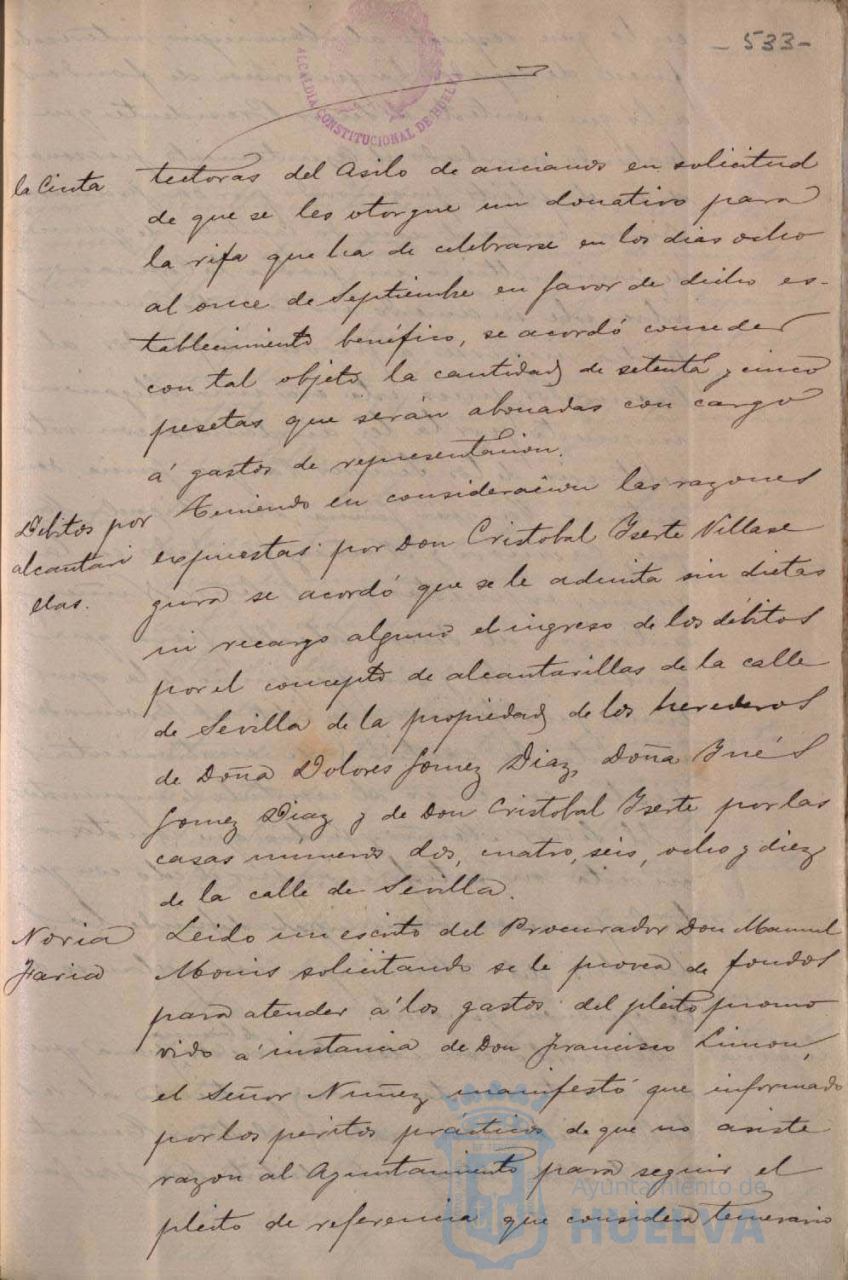 - 533 -
ALCALDÍA CONSTITUCIONAL DE HUELVA
la Cinta
tectoras del Asilo de ancianos en solicitud
de que se les otorgue un donativo para
la rifa que ha de celebrarse en los dias ocho
al once de Septiembre en favor de dicho es-
tablecimiento benéfico, se acordó conceder
con tal objeto la cantidad de setenta y cinco
pesetas que serán abonadas con cargo
á gastos de representacion.
Debitos por
alcantari
llas.
Teniendo en consideracion las razones
expuestas por Don Cristobal Yserte Villase
gura se acordó que se le admita sin dietas
ni recargo alguno el ingreso de los débitos
por el concepto de alcantarillas de la calle
de Sevilla de la propiedad de los herederos
de Doña Dolores Gomez Diaz, Doña Ynés
Gomez Diaz y de Don Cristobal Yserte por las
casas números dos, cuatro, seis, ocho y diez
de la calle de Sevilla.
Noria
Faria
Leido un escrito del Procurador Don Manuel
Monis solicitando se le provea de fondos
para atender á los gastos del pleito promo
vido á instancia de Don Francisco Limon,
el Señor Nuñez manifestó que informado
por los peritos prácticos de que no asiste
razon al Ayuntamiento para seguir el
pleito de referencia que considera temerario
Ayuntamiento de
HUELVA